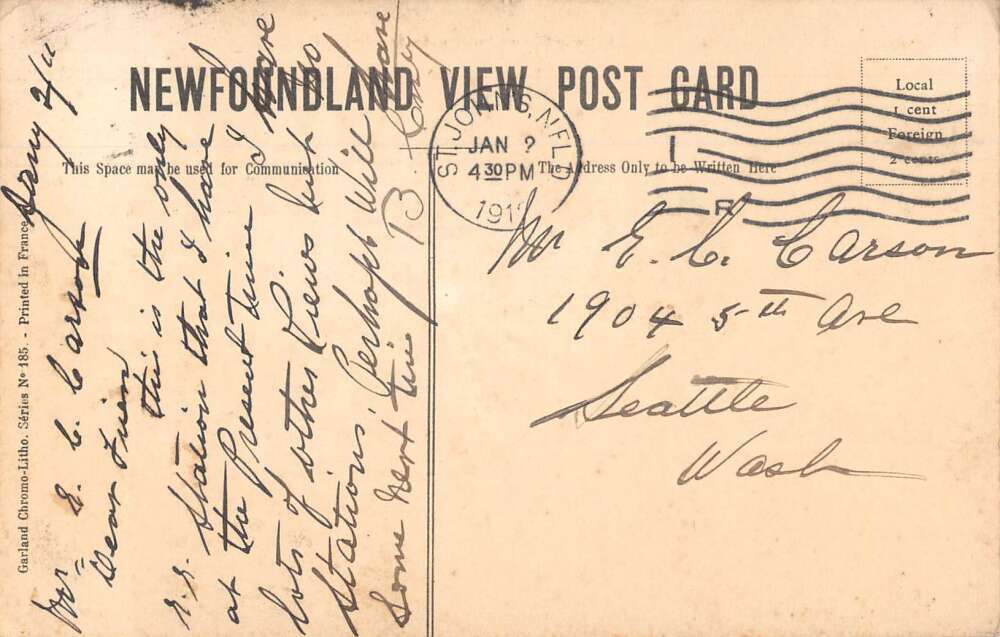 NEWFOUNDLAND VIEW POST CARD
This Space may be used for Communication
The Address Only to be Written Here
Local
1 cent
Foreign
2 cents
ST. JOHN'S, N'F'L'D
JAN ?
4 30 PM
191
R
Mr E. C. Carson
1904 5th Ave
Seattle
Wash
Jany 2/11
Mr E. C. Carson
Dear Frien
this is the only
R.R. Station that I have
at the Present time I have
lots of other Views but no
Stations Perhaps Will have
Some Next time
B.
Garland Chromo-Litho. Séries No 185. - Printed in France